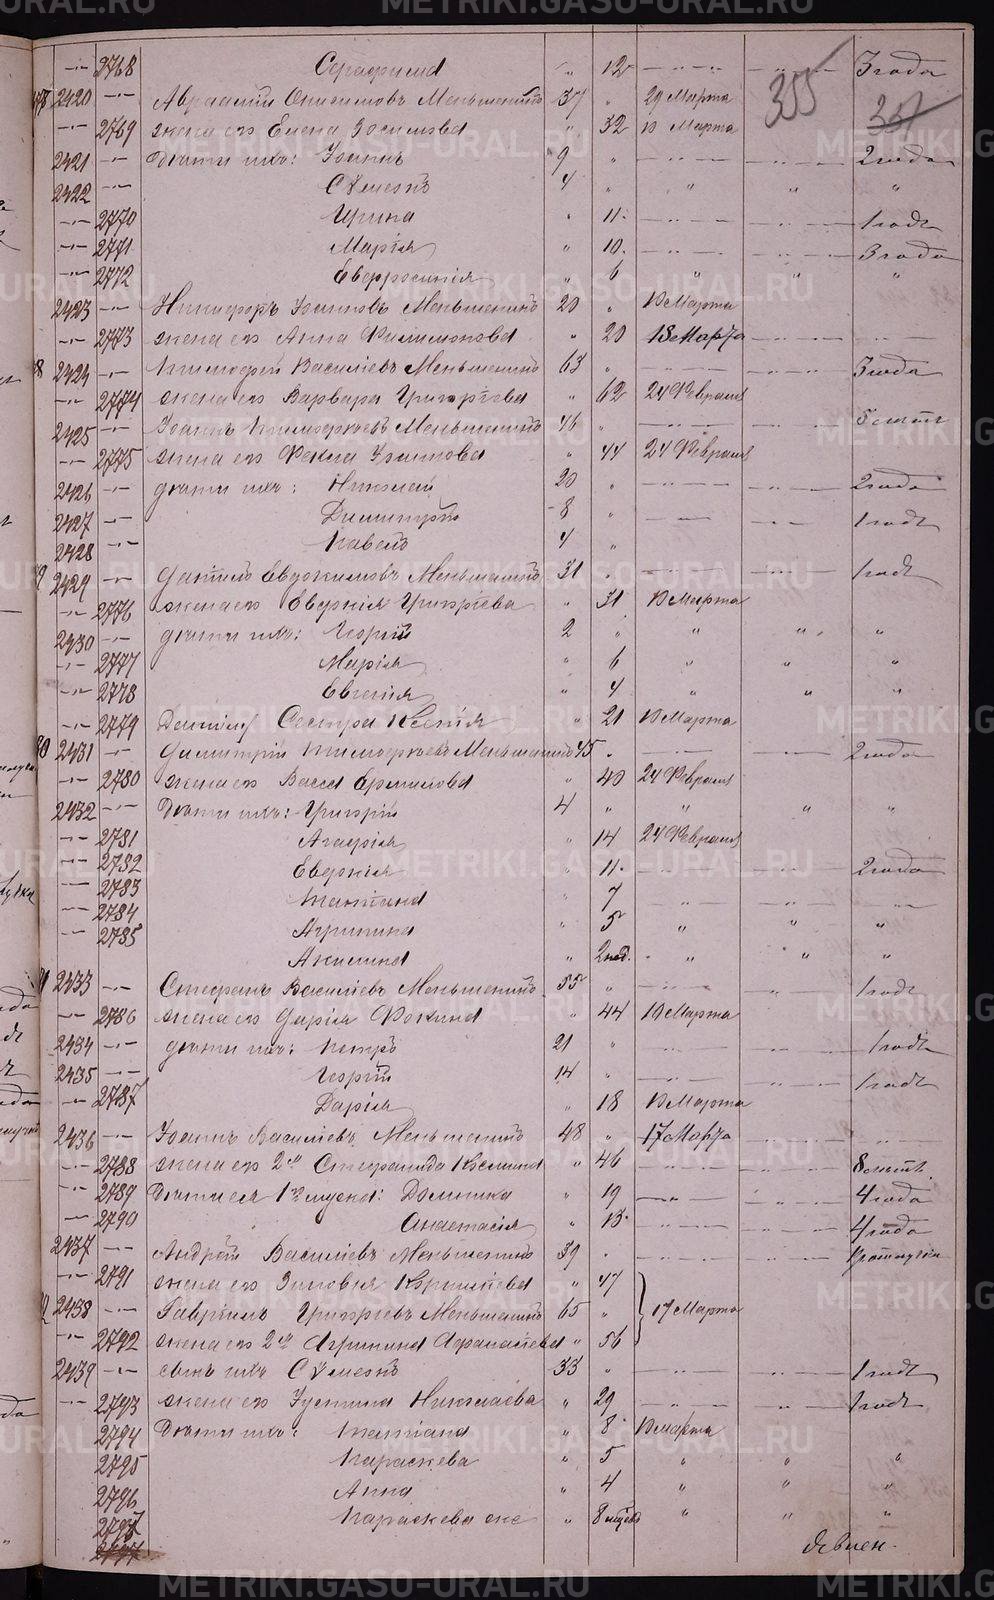 -"- 2768 Серафима " 12 -"-"- 3 года
305
307
2420 -"- Авраамий Онисимовъ Меньшенинъ 37 " 29 Марта
-"- 2769 жена его Елена Зосимова " 32 13 Марта
2421 -"- Дѣти ихъ: Іоаннъ 9 " -"-"- 2 года
2422 -"- Сѵмеонъ 4 " " " "
-"- 2770 Ирина " 11 -"-"- 1 годъ
-"- 2771 Марія " 10 -"-"- 3 года
-"- 2772 Евфросинія " 6 " " "
2423 -"- Никифоръ Іоанновъ Меньшенинъ 20 " 13 Марта
-"- 2773 жена его Анна Филимонова " 20 13 Марта
2424 -"- Тимофей Василіевъ Меньшенинъ 63 " 3 года
-"- 2774 жена его Варвара Григоріева " 62 24 Февраля
2425 -"- Іоаннъ Тимофеевъ Меньшенинъ 46 " 5 лѣтъ
-"- 2775 жена его Фекла Іоаннова " 44 24 Февраля
2426 -"- дѣти ихъ: Николай 20 " 2 года
2427 -"- Димитрій 8 " 1 годъ
2428 -"- Павелъ 4 "
2429 -"- Даніилъ Евдокимовъ Меньшенинъ 31 " 1 годъ
-"- 2776 жена его Евгенія Григоріева " 31 13 Марта
2430 -"- дѣти ихъ: Георгій 2 " " " "
-"- 2777 Марія " 6 " " "
-"- 2778 Евгенія " 4 " " "
-"- 2779 Даніилу Сестра Ксенія " 21 13 Марта
2431 -"- Димитрій Тимофеевъ Меньшенинъ 45 " 2 года
-"- 2780 жена его Васса Ермилова " 40 24 Февраля
2432 -"- Дѣти ихъ: Григорій 4 " " " "
-"- 2781 Агафія " 14 24 Февраля
-"- 2782 Евгенія " 11 2 года
-"- 2783 Татіана " 7
-"- 2784 Агрипина " 5 " " "
-"- 2785 Акилина " 2 нед. " " "
2433 -"- Стефанъ Василіевъ Меньшенинъ 55 " 1 годъ
-"- 2786 жена его Дарія Фокина " 44 13 Марта
2434 -"- дѣти ихъ: Петръ 21 " 1 годъ
2435 -"- Георгій 14 " 1 годъ
-"- 2787 Дарія " 18 13 Марта
2436 -"- Іоаннъ Василіевъ Меньшенинъ 48 " 17 Марта
-"- 2788 жена его 2я Стефанида Козмина " 46 8 лѣтъ
-"- 2789 Дѣти ея 1го мужа: Домника " 19 4 года
-"- 2790 Анастасія " 13 4 года
2437 -"- Андрей Василіевъ Меньшенинъ 39 "
-"- 2791 жена его Зиновія Корнилiева " 47
2438 -"- Гавріилъ Григоріевъ Меньшенинъ 65 " 17 Марта
-"- 2792 жена его 2я Агрипина Афанасіева " 56
2439 -"- сынъ ихъ Сѵмеонъ 33 " 1 годъ
-"- 2793 жена его Іустина Николаева " 29 1 годъ
-"- 2794 Дѣти ихъ: Татіана " 8 13 Марта
2795 Параскева " 5 " " "
2796 Анна " 4 " " "
2797 Параскева же " " " "